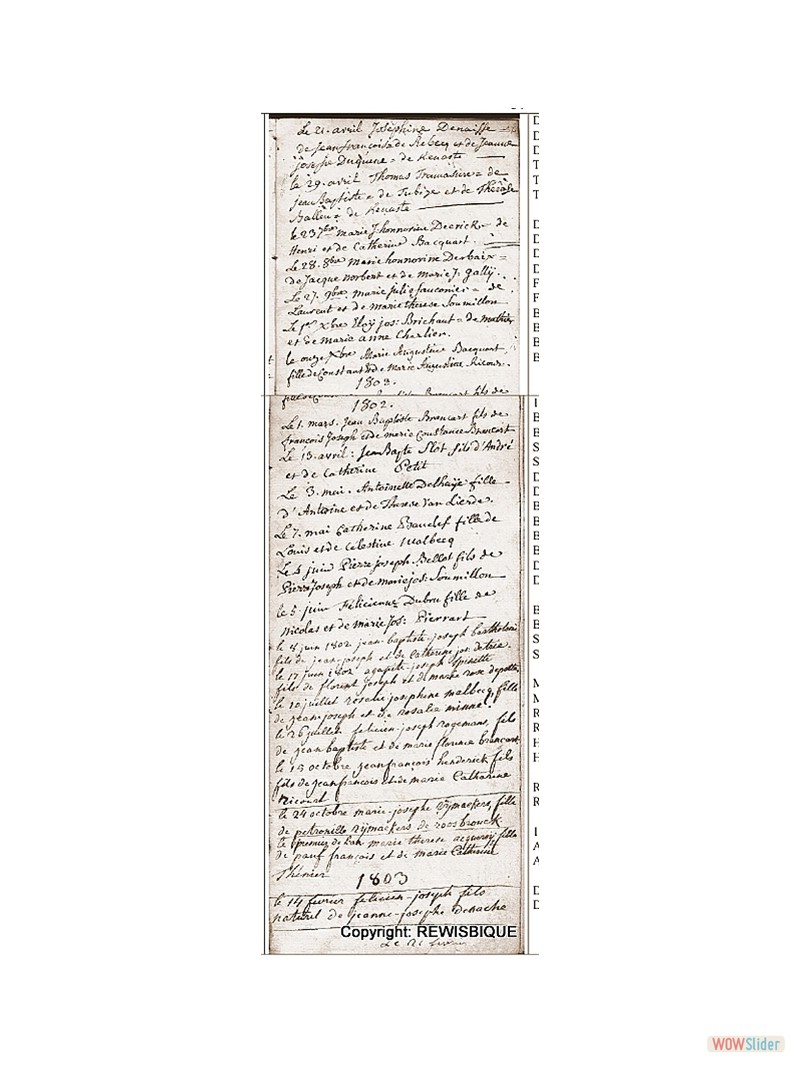 Le 21 avril Josephine Denaisse =
de jean françois = de Rebecq et de jeanne
joseph Duquene = de Kenaste
le 29 avril Thomas = de
jean Baptiste = de Tubize et de Therese
Balleu = de Kenaste
le 23 7bre marie J. honnorine Decrick = de
Henri et de Catherine Bacquart.
Le 28. 8bre Marie honnorine Derbaix =
de jacque norbert et de marie J. Gally.
Le 27. 9bre. marie julie fauconier = de
Laurent et de marie therese Soumillon
Le 1er Xbre Eloÿ jos: Brichaut = de mathieu
et de marie anne Charlier.
le onze Xbre Marie Augustine Bacquart
fille de Constant et de Marie Augustine Ricour.
1803.
1802.
Le 1. mars. Jean Baptiste Brancart fils de
françois Joseph et de marie Constance Brancart
Le 13. avril: Jean Bapte Slot fils d'André
et de Catherine Petit
Le 3. mai. Antoinette Delhaÿe fille
d'Antoine et de Therese Van Lierde.
Le 7. mai Catherine Bauclef fille de
Louis et de Celestine Malbecq
Le 4 juin Pierre joseph Bellot fils de
Pierre Joseph et de marie jos: Soumillon
le 5 juin Felicienne Dubru fille de
Nicolas et de marie Jos: Pierrart
le 8 juin 1802 jean-baptiste-joseph bartholomi
fils de jean-joseph et de Catherine jos. detrie.
le 17 juin 1802 agapite joseph Spinette
fils de florent joseph et de marie rose depotte
le 10 juillet rosalie josephine malbecq, fille
de jean-joseph et de rosalie minne.
le 26 juillet felicien-joseph rogemans, fils
de jean baptiste et de marie florence brancart
le 15 octobre jean françois henderick fils
fils de jean françois et de marie Catharine
Ricourt
le 24 octobre marie-josephe rijmackers, fille
de petronille rijmackers de roosbrouck
le premier de l'an marie therese acquroy, fille
de paul françois et de marie Catherine
Thénier
1803
le 14 fevrier felicien-joseph fils
naturel de jeanne-josephe denache
Copyright: REWISBIQUE
Le 21 fevrier
D
D
D
T
T
T
D
D
D
D
F
F
B
B
B
B
B
B
S
S
D
D
B
B
B
B
D
D
B
B
S
S
M
M
R
R
H
H
R
R
I
A
A
D
D
WOWSlider